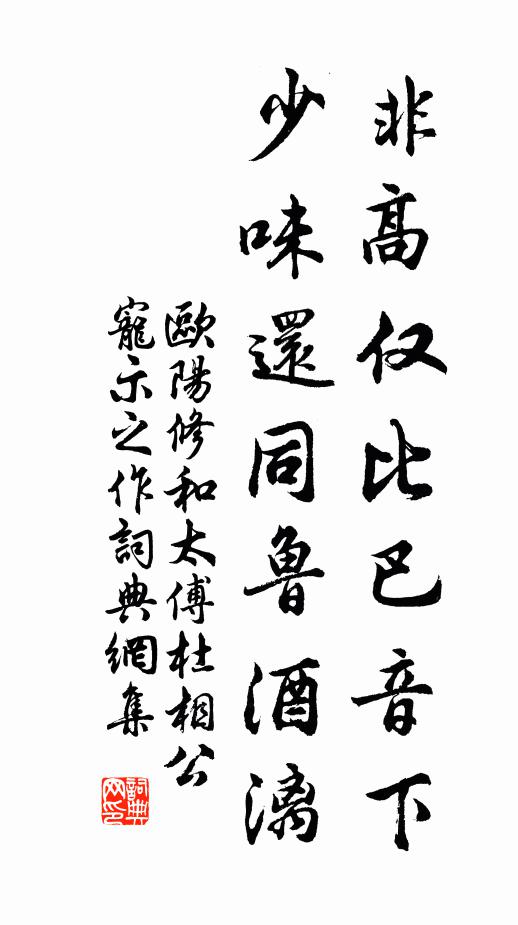 非高仅比巴音下
少味還同魯酒漓
歐陽修和太傅杜相公
寵示之作詞典網集
詞典
网印